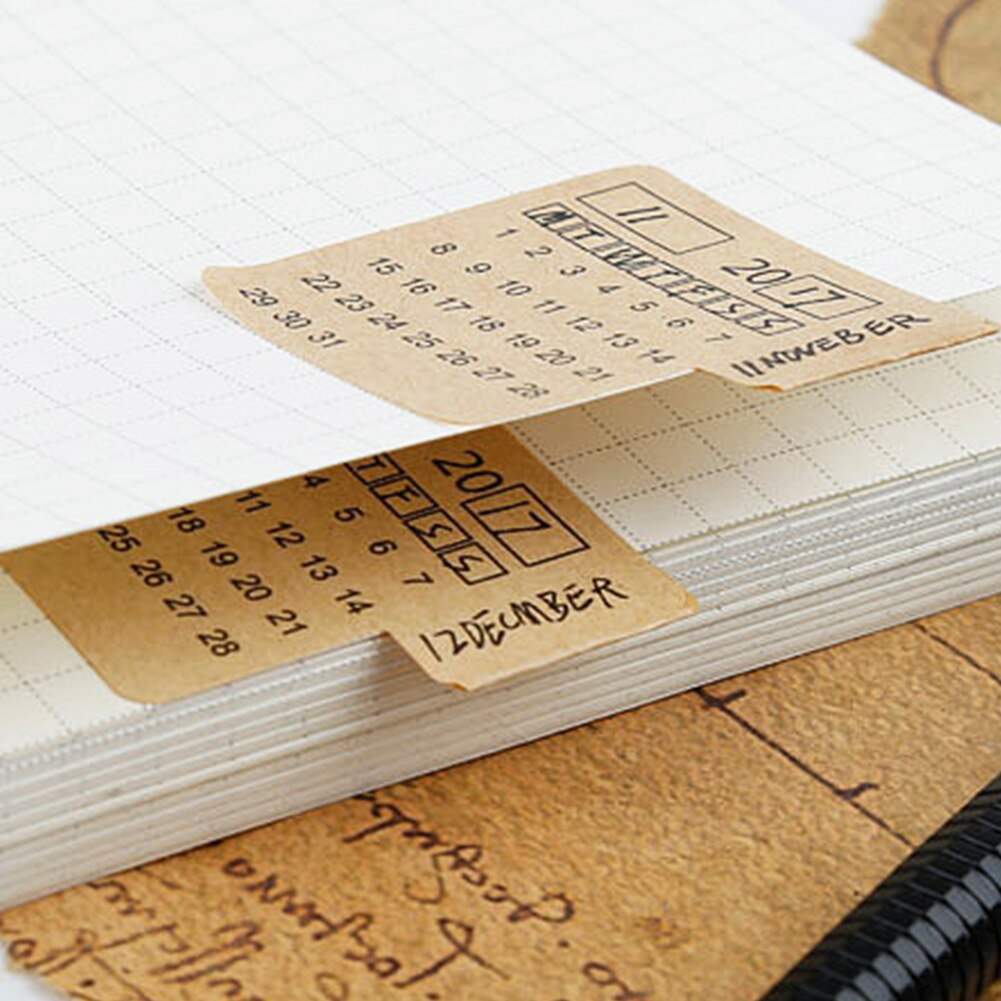 11
2017
M T W T F S S
1 2 3 4 5 6 7
8 9 10 11 12 13 14
15 16 17 18 19 20 21
22 23 24 25 26 27 28
29 30 31
11NOVEBER
2017
T F S S
4 5 6 7
11 12 13 14
18 19 20 21
25 26 27 28
12DECMBER